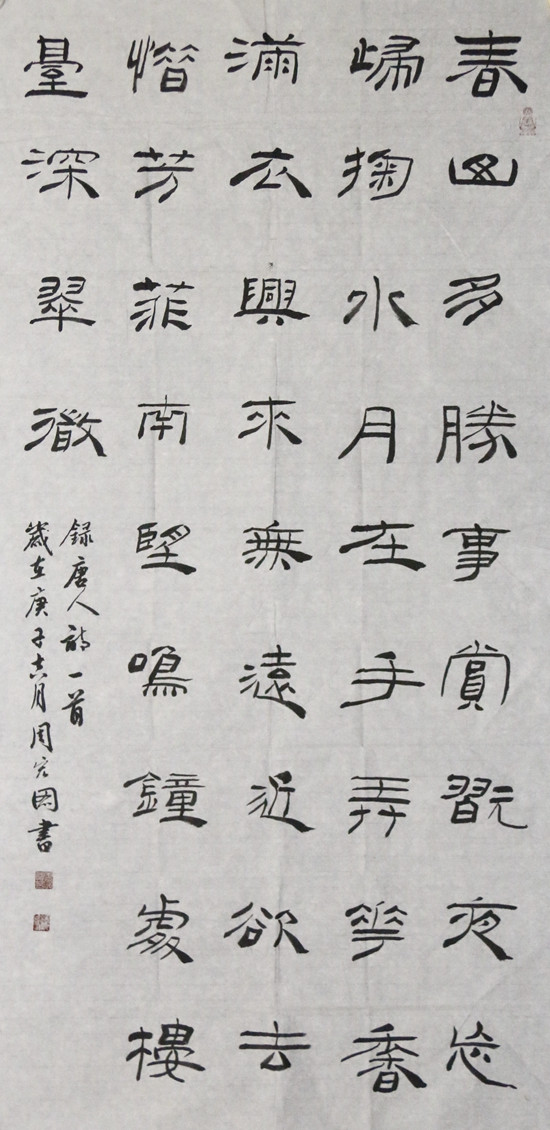 春山多勝事賞翫夜忘
歸掬水月在手弄花香
滿衣興來無遠近欲去
惜芳菲南望鳴鐘處樓
臺深翠微
錄唐人詩一首
歲在庚子六月周國書